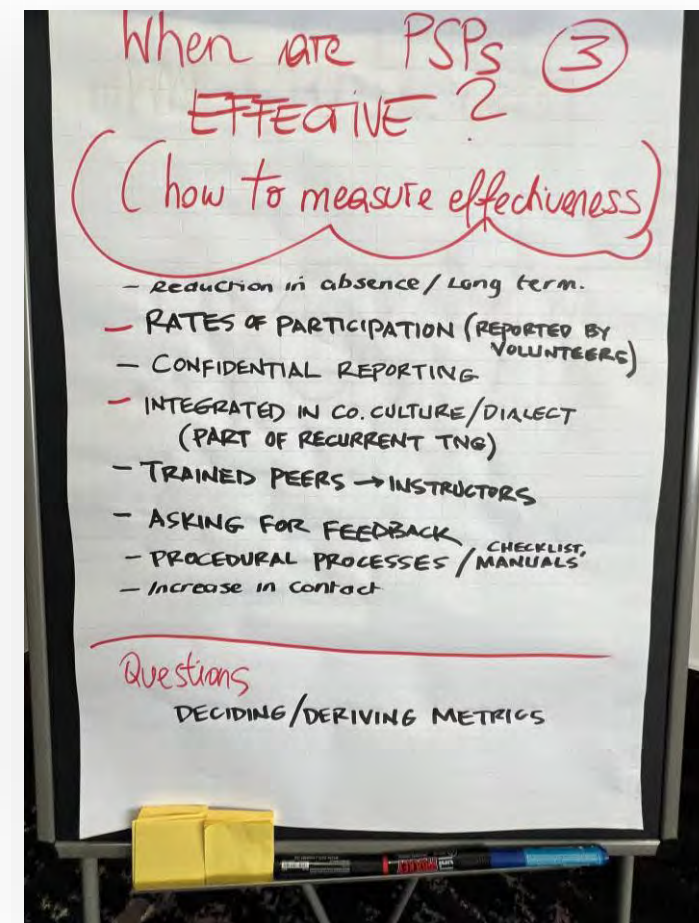 When are PSPs ③
EFFECTIVE ?
(how to measure effectiveness)
- Reduction in absence / Long term.
- RATES OF PARTICIPATION (REPORTED BY
VOLUNTEERS)
- CONFIDENTIAL REPORTING
- INTEGRATED IN CO. CULTURE/DIALECT
(PART OF RECURRENT TNG)
- TRAINED PEERS → INSTRUCTORS
- ASKING FOR FEEDBACK
- PROCEDURAL PROCESSES / CHECKLIST,
MANUALS
- Increase in contact
Questions
DECIDING/DERIVING METRICS